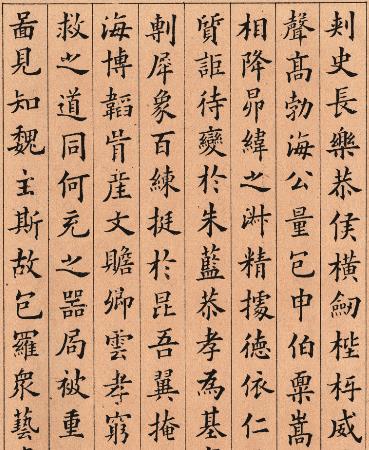 刾史長樂恭侯橫劒梐枑威
聲髙勃海公量包申伯稟嵩
相降昴緯之淋精據德依仁
質詎待變於朱藍恭孝為基
剸犀象百練挺於昆吾翼掩
海博韜肸產文贍卿雲孝窮
救之道同何充之器局被重
啚見知魏主斯故包羅衆藝